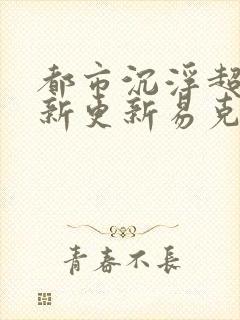 都市沉浮超
新更新易克
青春不长